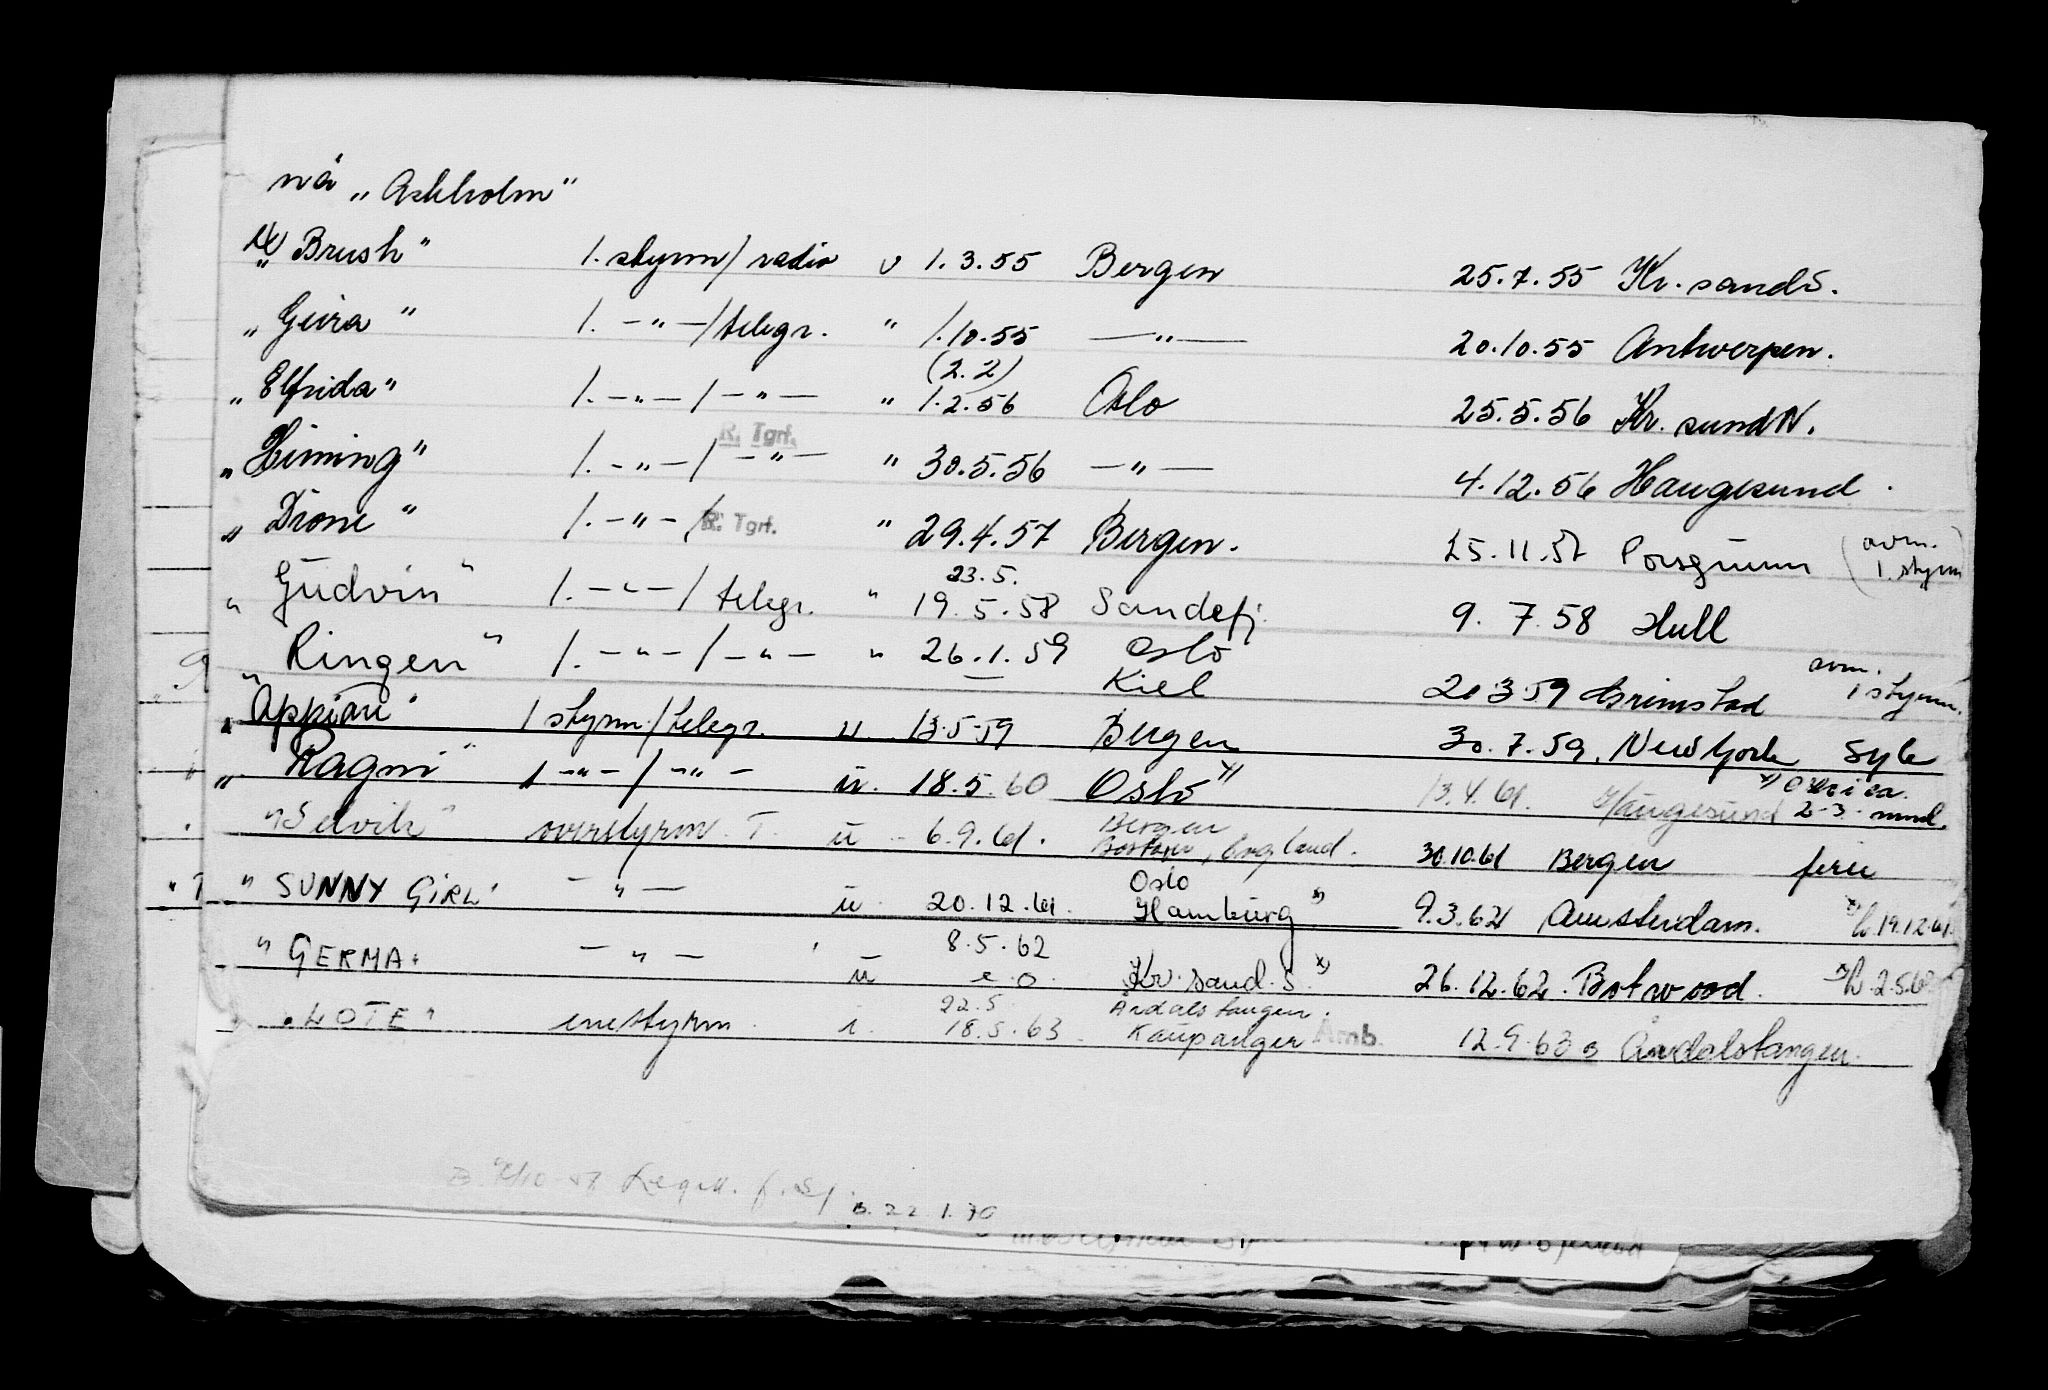 nå „Askholm"
„Brush" 1. styrm/radio u 1.3.55 Bergen 25.7.55 Kr.sandS.
„Geira" 1. -"-/telegr. " 1.10.55 -"- 20.10.55 Antwerpen.
(2.2)
„Elfrida" 1. -"-/-"- " 1.2.56 Oslo 25.5.56 Kr.sundN.
R. Tgrf.
„Heining" 1. -"-/-"- " 30.5.56 -"- 4.12.56 Haugesund.
„Dione" 1. -"-/R. Tgrf. " 29.4.57 Bergen. 25.11.57 Porsgrunn (avm. 1. styrm)
23.5.
„Gudvin" 1. -"-/telegr. " 19.5.58 Sandefj. 9.7.58 Hull
„Ringen" 1. -"-/-"- " 26.1.59 Oslo
Kiel 20.3.59 Grimstad avm. 1 styrm.
„Appian" 1 styrm./telegr. u. 13.5.59 Bergen 30.7.59. New York Syk
„Ragni" 1 -"-/-"- u. 18.5.60 Oslo x) 13.4.61. Haugesund x) 2-3. mnd.
Bergen
"Selvik" overstyrm. T. u 6.9.61. Boston, England. 30.10.61 Bergen ferie
Oslo
" SUNNY GIRL" -"- u 20.12.61. Hamburg x) 9.3.62 Amsterdam. x) h. 19.12.61.
8.5.62
" GERMA. -"- u Kr.sand.S. x) 26.12.62. Botwood. x) h. 2.5.62
22.5 Årdalstangen.
"LOTE" enestyrm. i. 18.5.63. Kaupanger Amb. 12.9.63 Årdalstangen.
B. 22.1.70